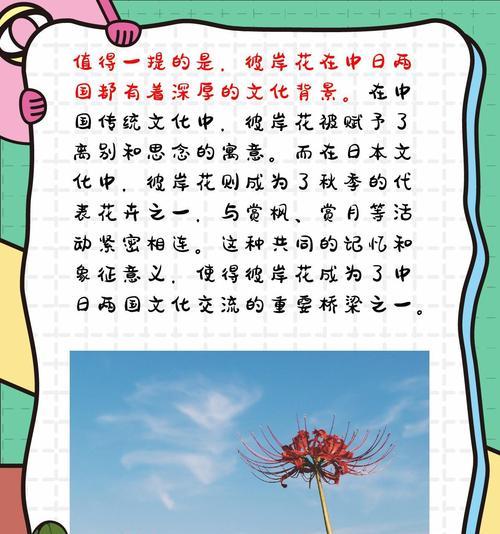 值得一提的是，彼岸花在中日两
国都有着深厚的文化背景。在中
国传统文化中，彼岸花被赋予了
离别和思念的寓意。而在日本文
化中，彼岸花则成为了秋季的代
表花卉之一，与赏枫、赏月等活
动紧密相连。这种共同的记忆和
象征意义，使得彼岸花成为了中
日两国文化交流的重要桥梁之一。